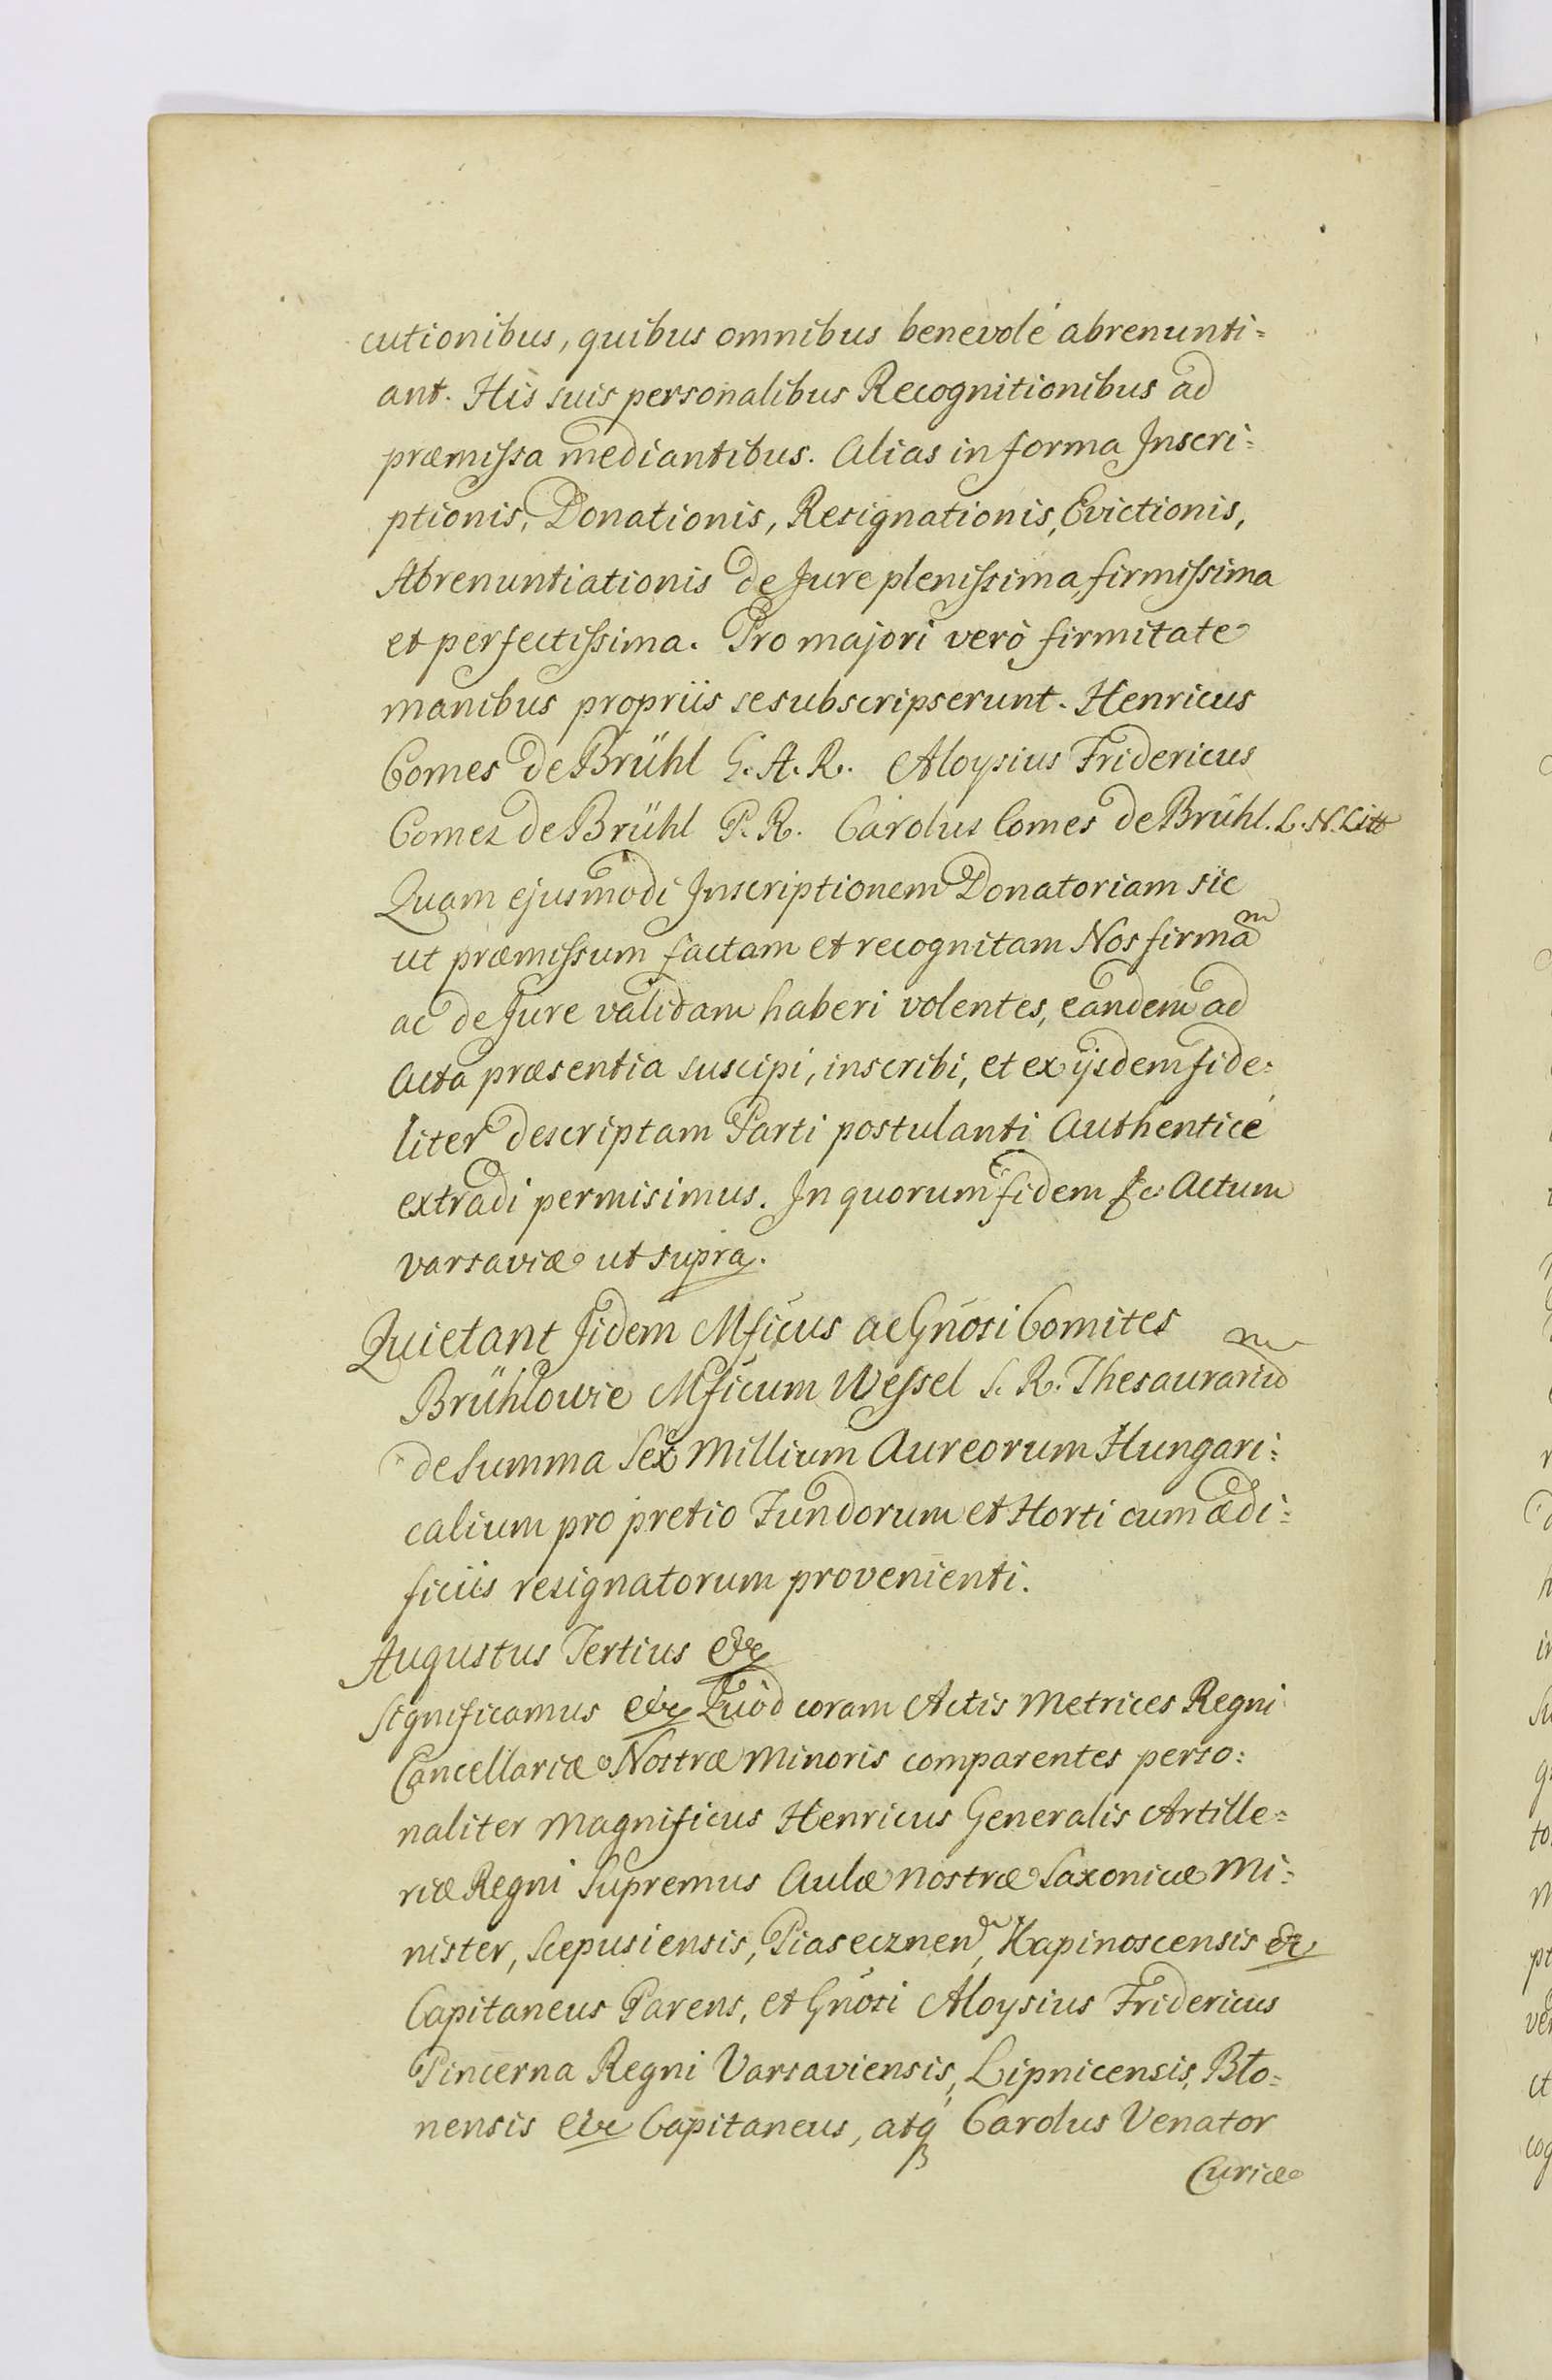 cutionibus, quibus omnibus benevolé abrenunti=
ant. His suis personalibus Recognitionibus ad
præmissa mediantibus. Alias in forma Inscri=
ptionis, Donationis, Resignationis, Evictionis,
Abrenuntiationis de Jure plenissima, firmissima
et perfectissima. Pro majori verò firmitate
manibus propriis se subscripserunt. Henricus
Comes de Brühl G. A. R. Aloysius Fridericus
Comes de Brühl P. R. Carolus Comes de Brühl. C. V. Litt
Quam ejusmodi Inscriptionem Donatoriam sic
ut præmissum factam et recognitam Nos firmam
ac de Jure validam haberi volentes, eandem ad
Acta præsentia suscipi, inscribi, et ex ijsdem fide=
liter descriptam Parti postulanti Authenticé
extradi permisimus. In quorum fidem &c Actum
Varsaviæ ut supra.
Quietant Iidem Mficus ac Gnosi Comites
Brühlowie Mficum Wessel S. R. Thesaurarium
de Summa Sex Millium Aureorum Hungari=
calium pro pretio Fundorum et Horti cum ædi=
ficiis resignatorum provenienti.
Augustus Tertius &c
Significamus &c Quòd coram Actis Metrices Regni
Cancellariæ Nostræ Minoris comparentes perso=
naliter Magnificus Henricus Generalis Artille=
riæ Regni Supremus Aulæ nostræ Saxonicæ Mi=
nister, Scepusiensis, Piasecznen, Kapinoscensis &c
Capitaneus Parens, et Gnosi Aloysius Fridericus
Pincerna Regni Varsaviensis, Lipnicensis, Bło=
nensis &c Capitaneus, atq Carolus Venator
Curiæ